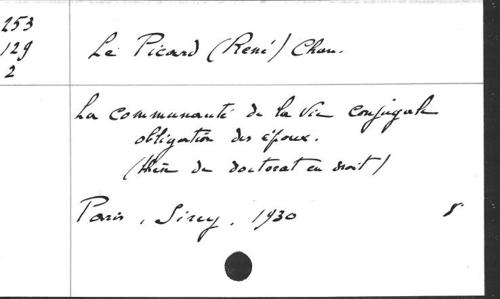 253
129
2
Le Picard (René) Chan.
La communauté de la vie conjugale
obligation des époux.
(thèse de doctorat en droit)
Paris, Sirey, 1930 8